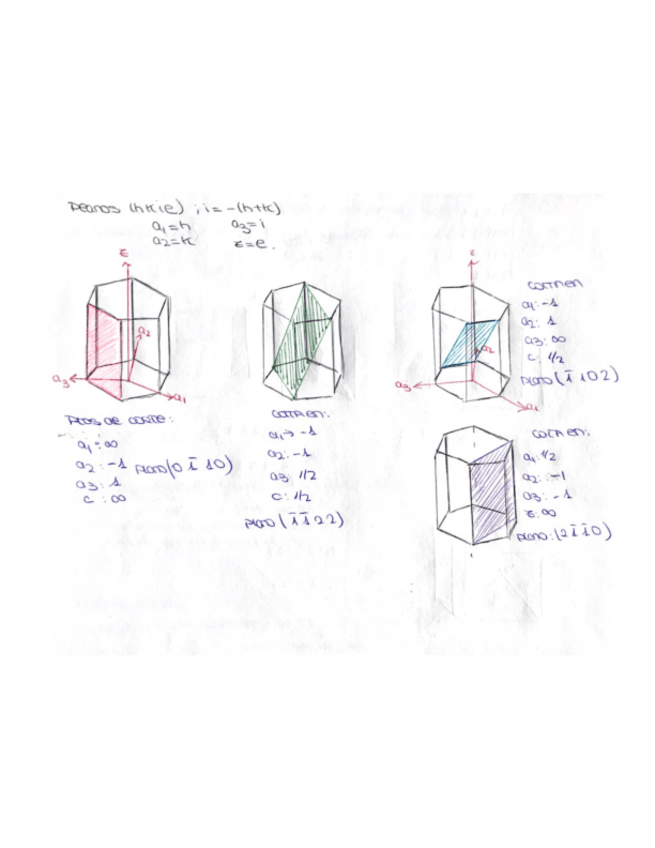 Planos (hkil) ; i = -(h+k)
a1 = h a3 = i
a2 = k z = l.
z
a2
a3
a1
Ptos de corte:
a1 : ∞
a2 : -1 plano (0 1̅ 1 0)
a3 : 1
c : ∞
Corta en:
a1 → -1
a2 : -1
a3 : 1/2
c : 1/2
plano (1̅ 1̅ 2 2)
z
a2
a3
a1
Corta en
a1 : -1
a2 : 1
a3 : ∞
c : 1/2
plano (1̅ 1 0 2)
Corta en:
a1 : 1/2
a2 : -1
a3 : -1
z : ∞
plano : (2 1̅ 1̅ 0)